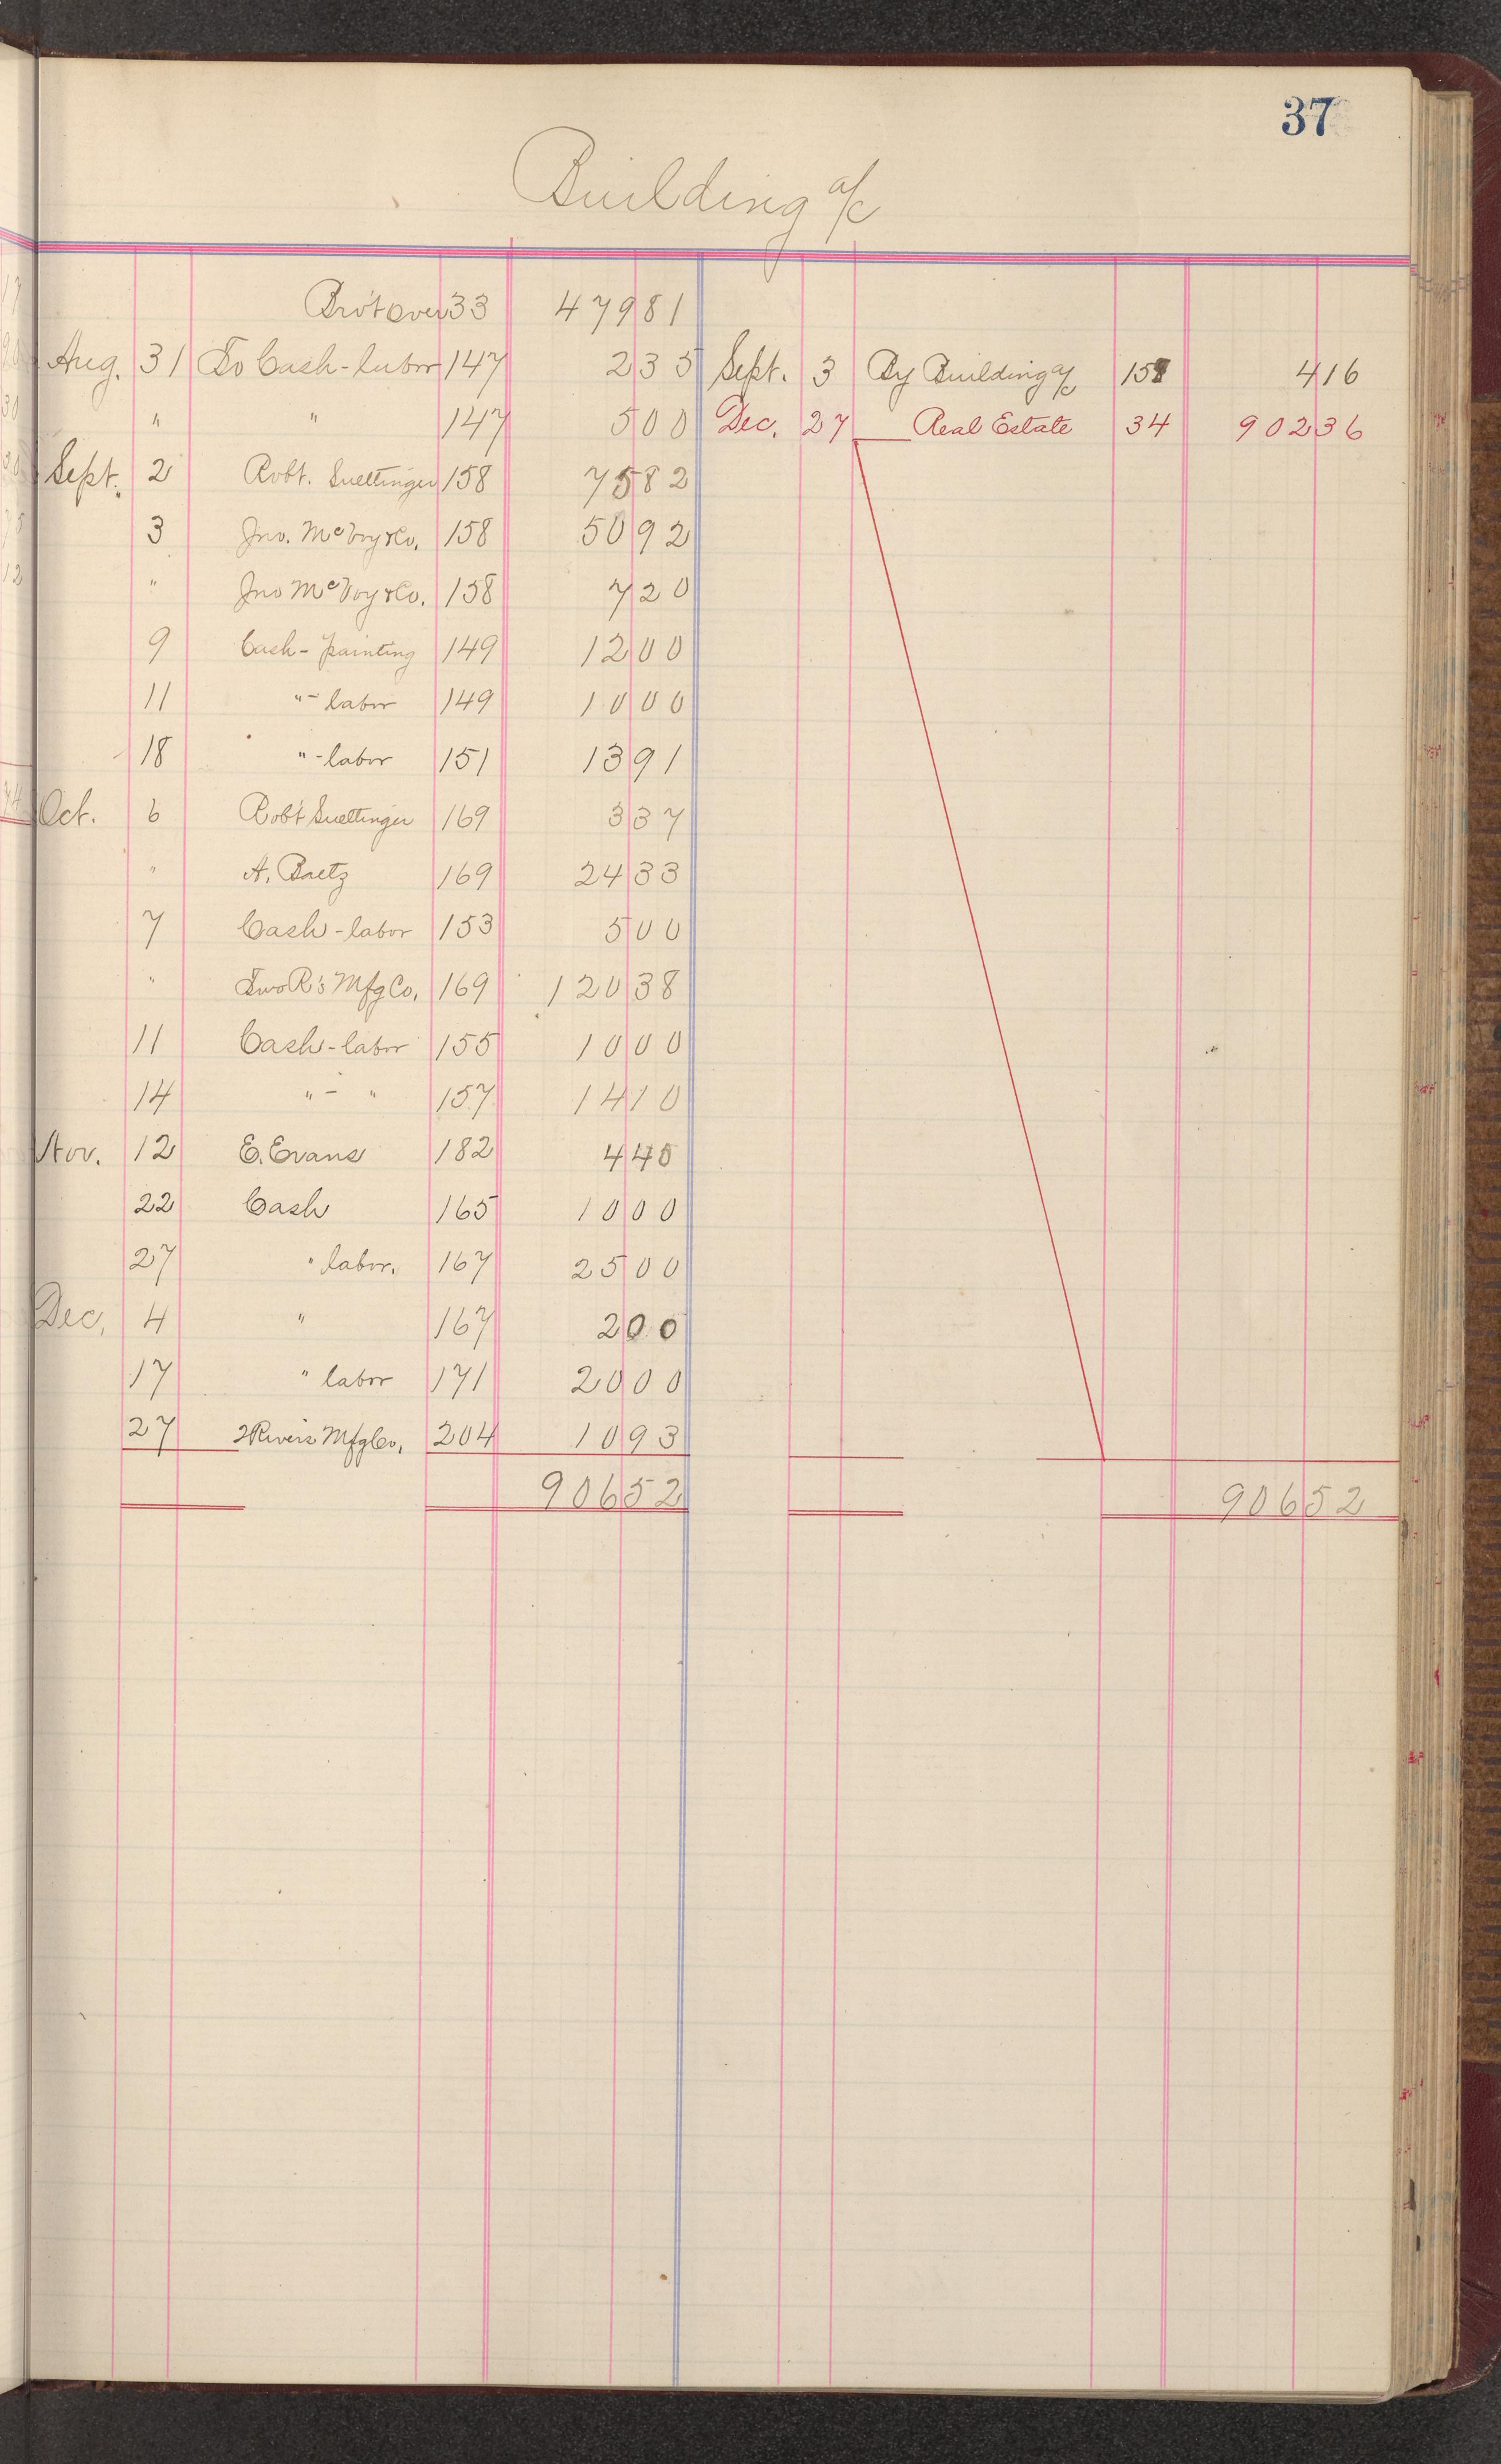 37
Building a/c
Bro't Over 33 479 81
Aug. 31 To Cash-labor 147 2 35 Sept. 3 By Building a/c 158 4 16
" " 147 5 00 Dec. 27 Real Estate 34 902 36
Sept. 2 Robt. Suettinger 158 75 82
3 Jno. McVoy & Co. 158 50 92
" Jno McVoy & Co. 158 7 20
9 Cash - painting 149 12 00
11 " - labor 149 10 00
18 " - labor 151 13 91
Oct. 6 Rob't Suettinger 169 3 37
" A. Baetz 169 24 33
7 Cash - labor 153 5 00
" Two R's Mfg Co. 169 120 38
11 Cash - labor 155 10 00
14 " - " 157 14 10
Nov. 12 E. Evans 182 4 40
22 Cash 165 10 00
27 " labor. 167 25 00
Dec. 4 " 167 2 00
17 " labor 171 20 00
27 2 Rivers Mfg Co. 204 10 93
906 52 906 52